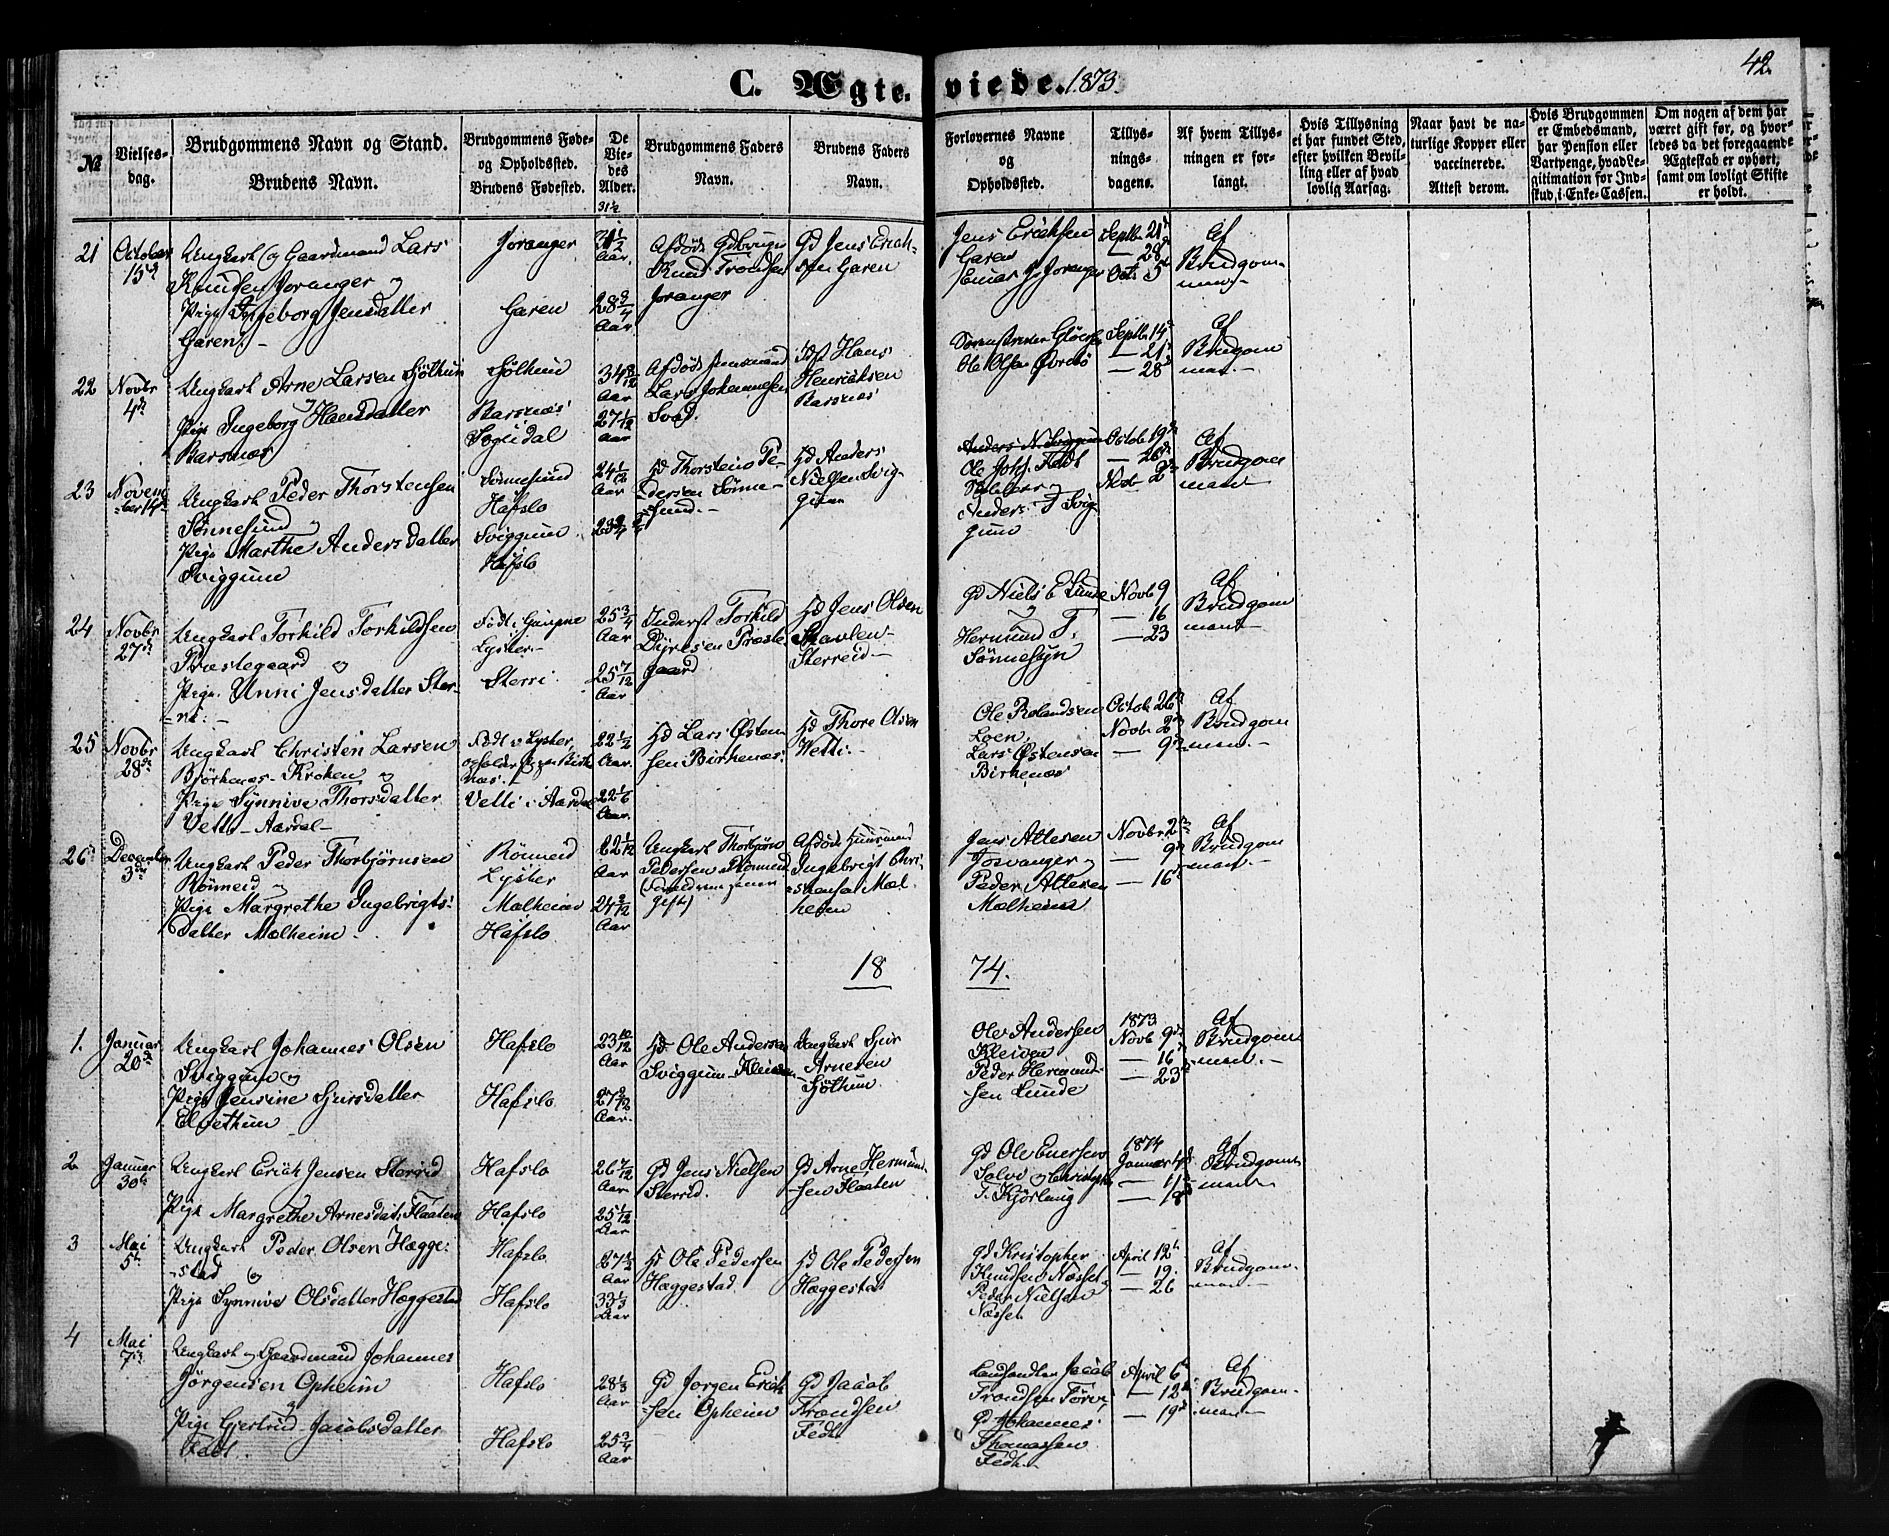 42.
C. Ægte- viede. 1873.
№
Vielses-
dag.
Brudgommens Navn og Stand.
Brudens Navn.
Brudgommens Føde-
og Opholdssted.
Brudens Fødested.
De
Vie-
des
Alder.
Brudgommens Faders
Navn.
Brudens Faders
Navn.
Forlovernes Navne
og
Opholdssted.
Tillys-
nings-
dagens.
Af hvem Tillys-
ningen er for-
langt.
Hvis Tillysning
ei har fundet Sted,
efter hvilken Bevil-
ling eller af hvad
lovlig Aarsag.
Naar havt de na-
turlige Kopper eller
vaccinerede.
Attest derom.
Hvis Brudgommen
er Embedsmand,
har Pension eller
Vartpenge, hvad Le-
gitimation for Ind-
skud i Enke-Cassen.
Om nogen af dem har
været gift før, og hvor-
ledes da det foregaaende
Ægteskab er ophørt,
samt om lovligt Skifte
er holdt.
21
October
15d
Ungkarl og Gaardmand Lars
Knudsen Joranger og
Pige Ingeborg Jensdatter
Garen. -
Joranger
Garen
31 1/2
Aar.
28 3/4
Aar.
Afdøde Gdbruger
Knud Trondsen
Joranger
Gd Jens Erich-
sen Garen
Jens Erichsen
Garen
Einar Joranger
Septb. 21d
— 28
Oct. 5t
Af
Brudgom-
men -
22
Novbr
4de
Ungkarl Arne Larsen Sjølhun
og
Pige Ingeborg Hansdatter
Barsnæs
Sjølhun
Barsnæs
Sogndal
34 8/12
Aar
27 1/12
Aar
Afdøde Huusmand
Lars Johannesen
Hans
Henrichsen
Barsnæs
Ole Olsen
Septb. 14d
— 21d
— 28d
Af
Brudgom
man. -
23
Novem
-ber 14d
Ungkarl Peder Thorstensen
Sønnesund og
Pige Marthe Andersdatter
Sviggum
Sønnesund
Hafslo
Sviggum
Hafslo
24 1/12
Aar
Gd Thorstens Pe-
dersen Sønne-
sund. -
Gd Anders
Nielsen Svig-
gum
Anders N. Sviggum
Ole Johs. Fedt
Anders Svig
gum
Octob. 19d
— 26d
Novb. 2d
Af
Brudgom
man -
24
Novbr
27de
Ungkarl Torkild Torkildsen
Præstegaard og
Pige. Unni Jensdatter Ster-
-ri: -
Født i Gaupne
Lyster -
Sterri
25 3/4
Aar
25 7/12
Aar
Inderst Torkild
Dyresen Præste
gaard
Gd Jens Olsen
Skavlen -
Sterreid -
Gd Niels E Lunde
og
Hermund T.
Sønnesyn
Novb 9
— 16
— 23
Af
Brudgom
man -
25
Novbr
28de
Ungkarl Christen Larsen
Bjørkenæs - Kroken og
Pige Synnive Thorsdatter
Vetti - Aardal -
Født i Lyster
næs. -
Vetti i Aardal
22 1/2
Aar.
22 1/6
Aar.
Gd Lars Østen
sen Birkenæs.
Gd Thore Olsen
Vetti. -
Ole Rolandsen
Loen,
Lars Østensen
Birkenæs
Octob. 26d
Novb. 2d
— 9d
Af
Brudgom
man. -
26
December
3die
Ungkarl Peder Thorbjørnsen
Rønneid og
Pige Margrethe Ingebrigts-
datter Molheim -
Rønneid
Lyster
Molheim
Hafslo
22 1/12
Aar
24 3/12
Aar
Ungkarl Thorbjørn
Pedersen Rønneid
gift)
Afdøde Huusmand
Ingebrigt Chri-
stensen Mol-
heim
Jens Attesen
Josvanger og
Peder Attesen
Molheim
Novbr. 2d
— 9d
— 16d
Af
Brudgom
man. -
18 74.
1.
Januar
20de
Ungkarl Johannes Olsen
Sviggum og
Pige Jensine Sjursdatter
Elvethun -
Hafslo
Hafslo
23 10/12
Aar
27 9/12
Aar.
Gd Ole Andersen
Sviggum - Kleiven
Ungkarl Sjur
Arnesen
Sjøthun
Ole Andersen
Kleiven
Peder Hermund-
sen Lunde
1873
Novb 9de
— 16d
— 23d
Af
Brudgom
man. -
2
Januar
30te
Ungkarl Erich Jensen Sterrid
Pige Margrethe Arnesdat. Flaaten
Hafslo
Hafslo
26 7/12
Aar
25 1/12
Aar
Gd Jens Nielsen
Sterrid.
Gd Arne Hermund-
sen Flaaten
Gd Ole Enersen
Solvi og Christopher
T. Kjørlaug
1874
Januar 4d
— 11
— 18
Af
Brudgom
man
3
Mai
5te
Ungkarl Peder Olsen Hægge-
-stad og
Pige Synnive Olsdatter Hæggestad
Hafslo
Hafslo
27 1/2
Aar
33 1/3
Aar
Gd Ole Pedersen
Hæggestad.
Gd Ole Pedersen
Hæggestad
Gd Kristopher
Knudsen Næsset
Peder Nielsen
Næsset
April 12te
— 19.
— 26
Af
Brudgom-
man -
4
Mai
7de
Ungkarl og Gaardmand Johannes
Jørgensen Opheim
og
Pige Gjertrud Jacobsdatter
Fedt.
Hafslo
Hafslo
28 1/3
Aar
25 3/4
Aar
Gd Jørgen Erich
-sen Opheim
Gd Jacob
Trondsen
Fedt.
Landhandler Jacob
Trondsen
Gd Johannes
Thomassen
Fedt. -
April 6te
— 12te
— 19d
Af
Brudgom-
man -